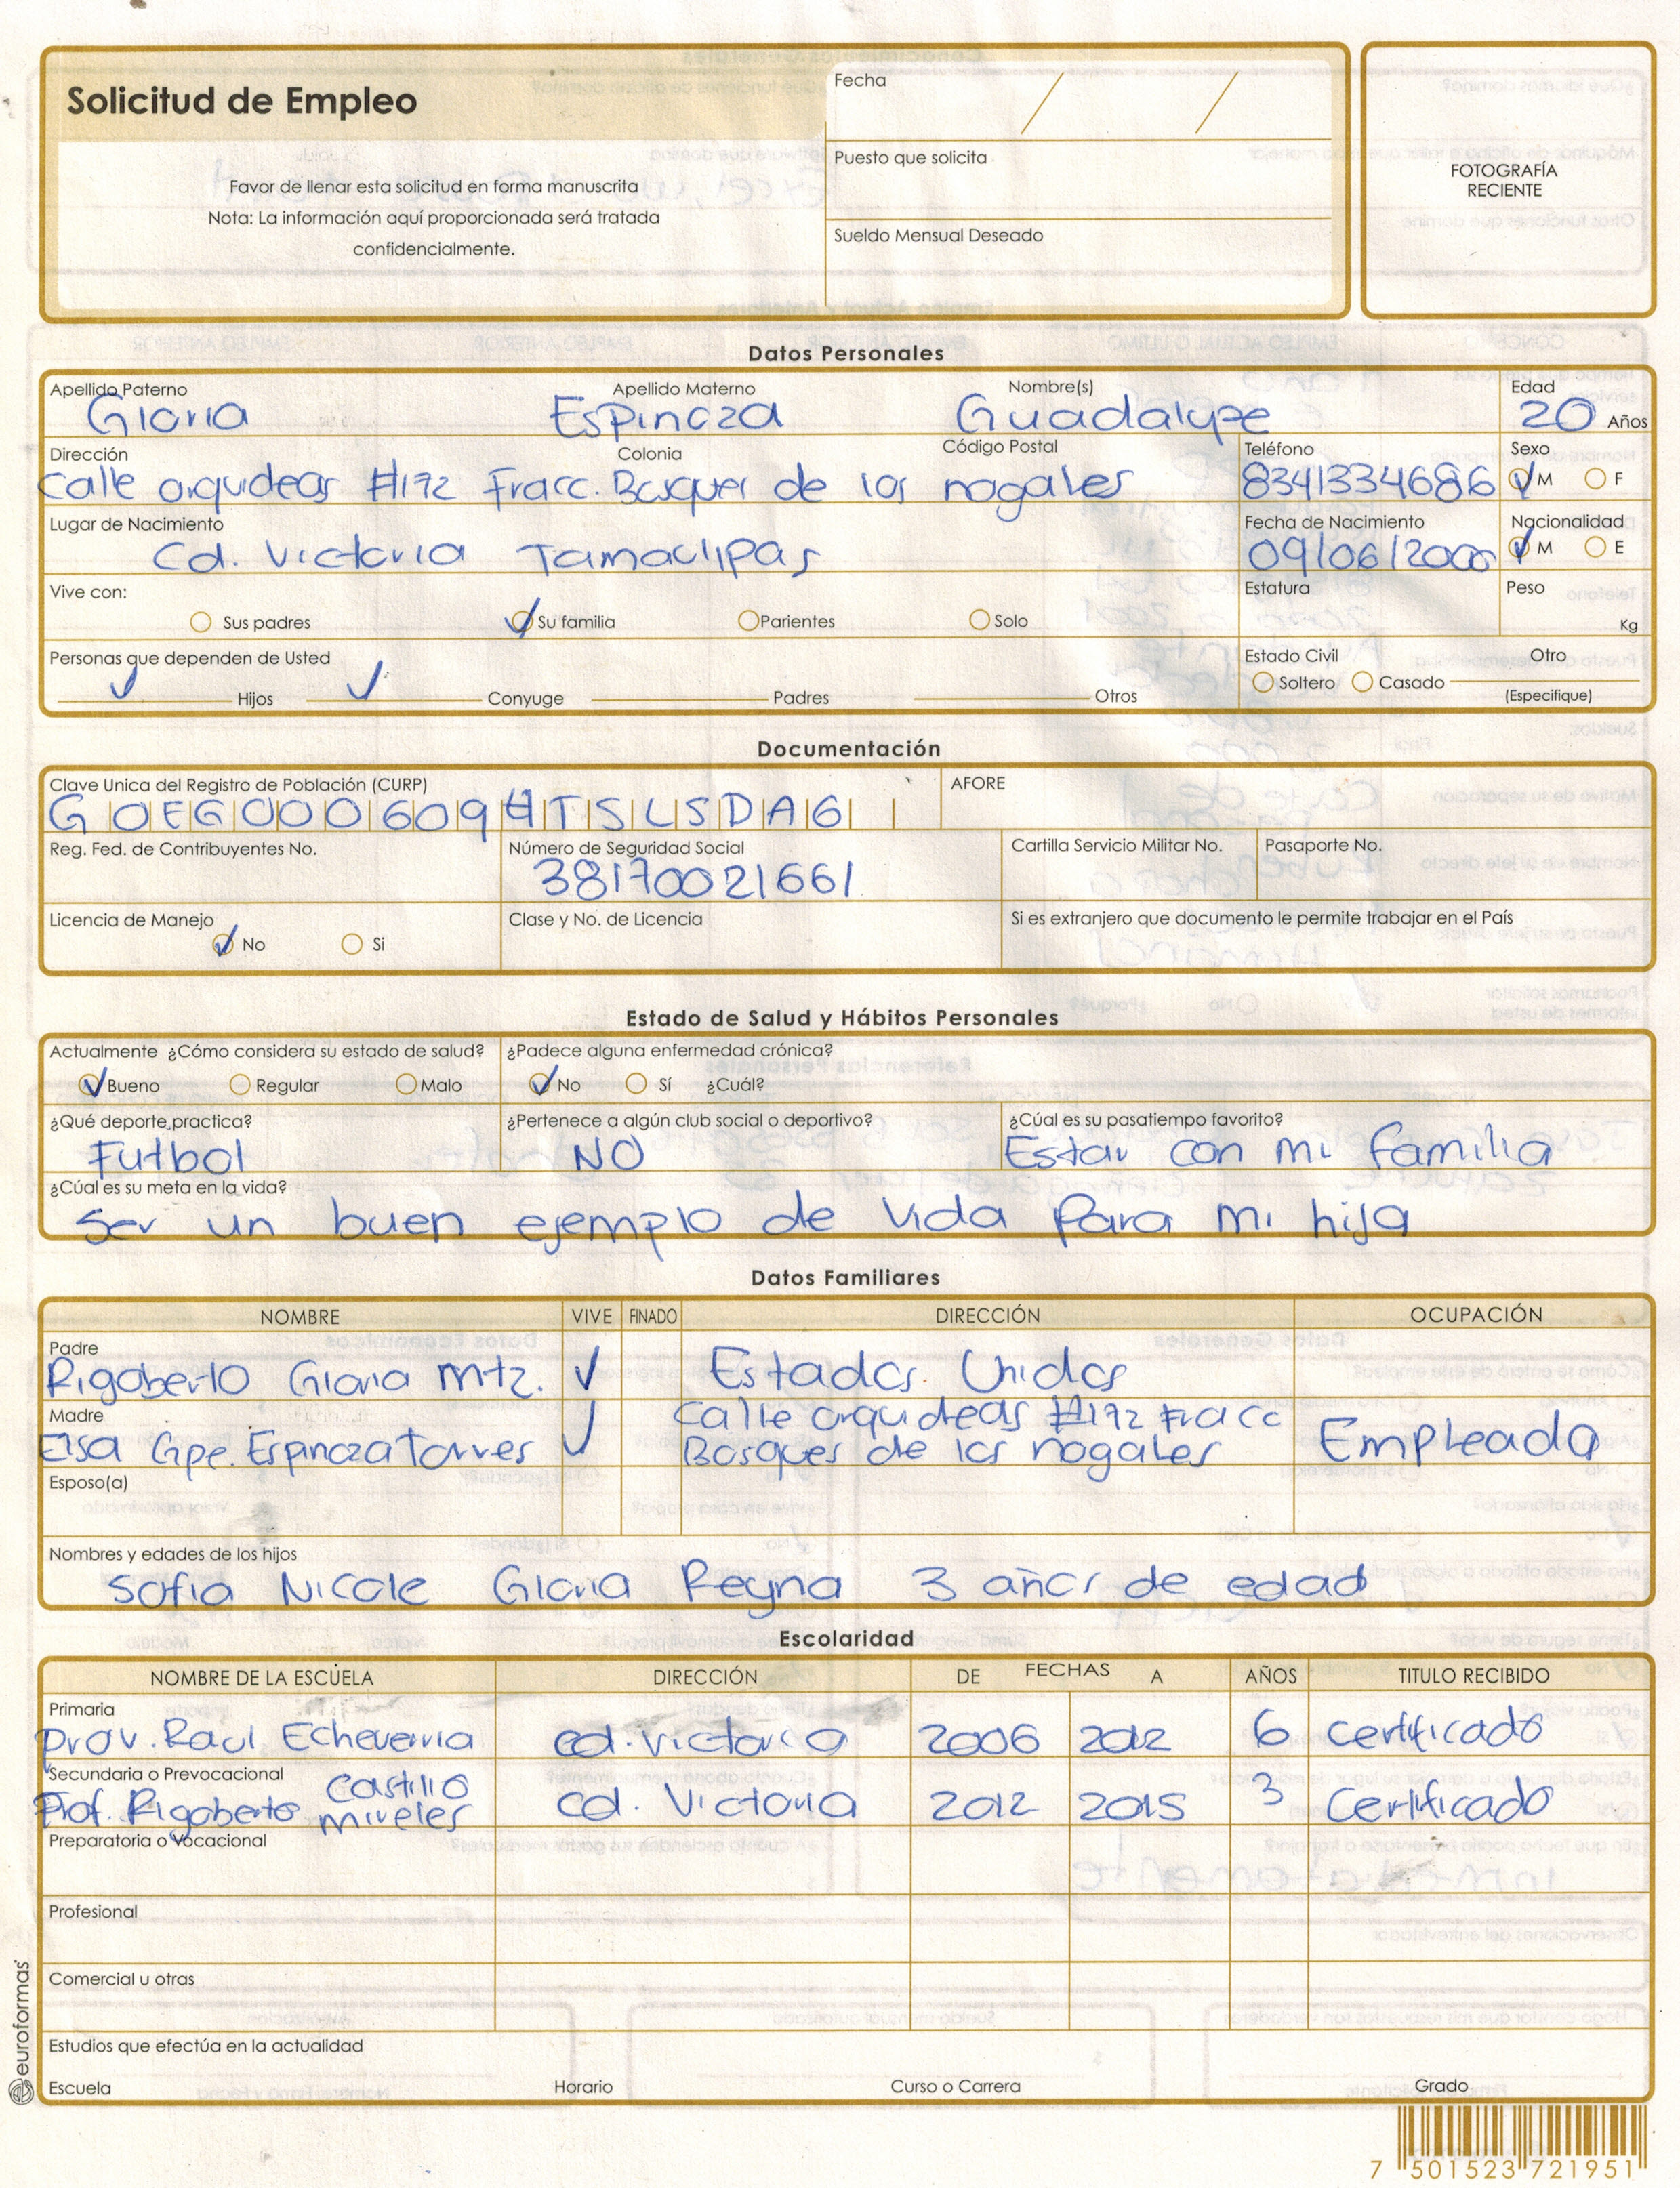 Solicitud de Empleo
Favor de llenar esta solicitud en forma manuscrita
Nota: La información aquí proporcionada será tratada
confidencialmente.
Fecha / /
Puesto que solicita
Sueldo Mensual Deseado
FOTOGRAFÍA
RECIENTE
Datos Personales
Apellido Paterno Apellido Materno Nombre(s) Edad
Gloria Espinoza Guadalupe 20 Años
Dirección Colonia Código Postal Teléfono Sexo
Calle orquideas #172 Fracc. Bosques de los nogales 8341334686 M F
Lugar de Nacimiento Fecha de Nacimiento Nacionalidad
Cd. Victoria Tamaulipas 09/06/2000 M E
Vive con: Estatura Peso
Sus padres Su familia Parientes Solo Kg
Personas que dependen de Usted Estado Civil Otro
Hijos Conyuge Padres Otros Soltero Casado (Especifique)
Documentación
Clave Unica del Registro de Población (CURP) AFORE
GOEG000609HTSLSDA6
Reg. Fed. de Contribuyentes No. Número de Seguridad Social Cartilla Servicio Militar No. Pasaporte No.
38170021661
Licencia de Manejo Clase y No. de Licencia Si es extranjero que documento le permite trabajar en el País
No Si
Estado de Salud y Hábitos Personales
Actualmente ¿Cómo considera su estado de salud? ¿Padece alguna enfermedad crónica?
Bueno Regular Malo No Sí ¿Cuál?
¿Qué deporte practica? ¿Pertenece a algún club social o deportivo? ¿Cúal es su pasatiempo favorito?
Futbol NO Estar con mi familia
¿Cúal es su meta en la vida?
Ser un buen ejemplo de vida para mi hija
Datos Familiares
NOMBRE VIVE FINADO DIRECCIÓN OCUPACIÓN
Padre
Rigoberto Gloria Mtz. Estados Unidos
Madre
Elsa Gpe. Espinoza Torres Calle orquideas #172 Fracc
Bosques de los nogales Empleada
Esposo(a)
Nombres y edades de los hijos
Sofia Nicole Gloria Reyna 3 años de edad
Escolaridad
NOMBRE DE LA ESCUELA DIRECCIÓN DE FECHAS A AÑOS TITULO RECIBIDO
Primaria
Prov. Raul Echeverria cd. victoria 2006 2012 6 certificado
Secundaria o Prevocacional
Prof. Rigoberto Castillo
mireles cd. Victoria 2012 2015 3 Certificado
Preparatoria o Vocacional
Profesional
Comercial u otras
Estudios que efectúa en la actualidad
Escuela Horario Curso o Carrera Grado
euroformas
7 501523 721951